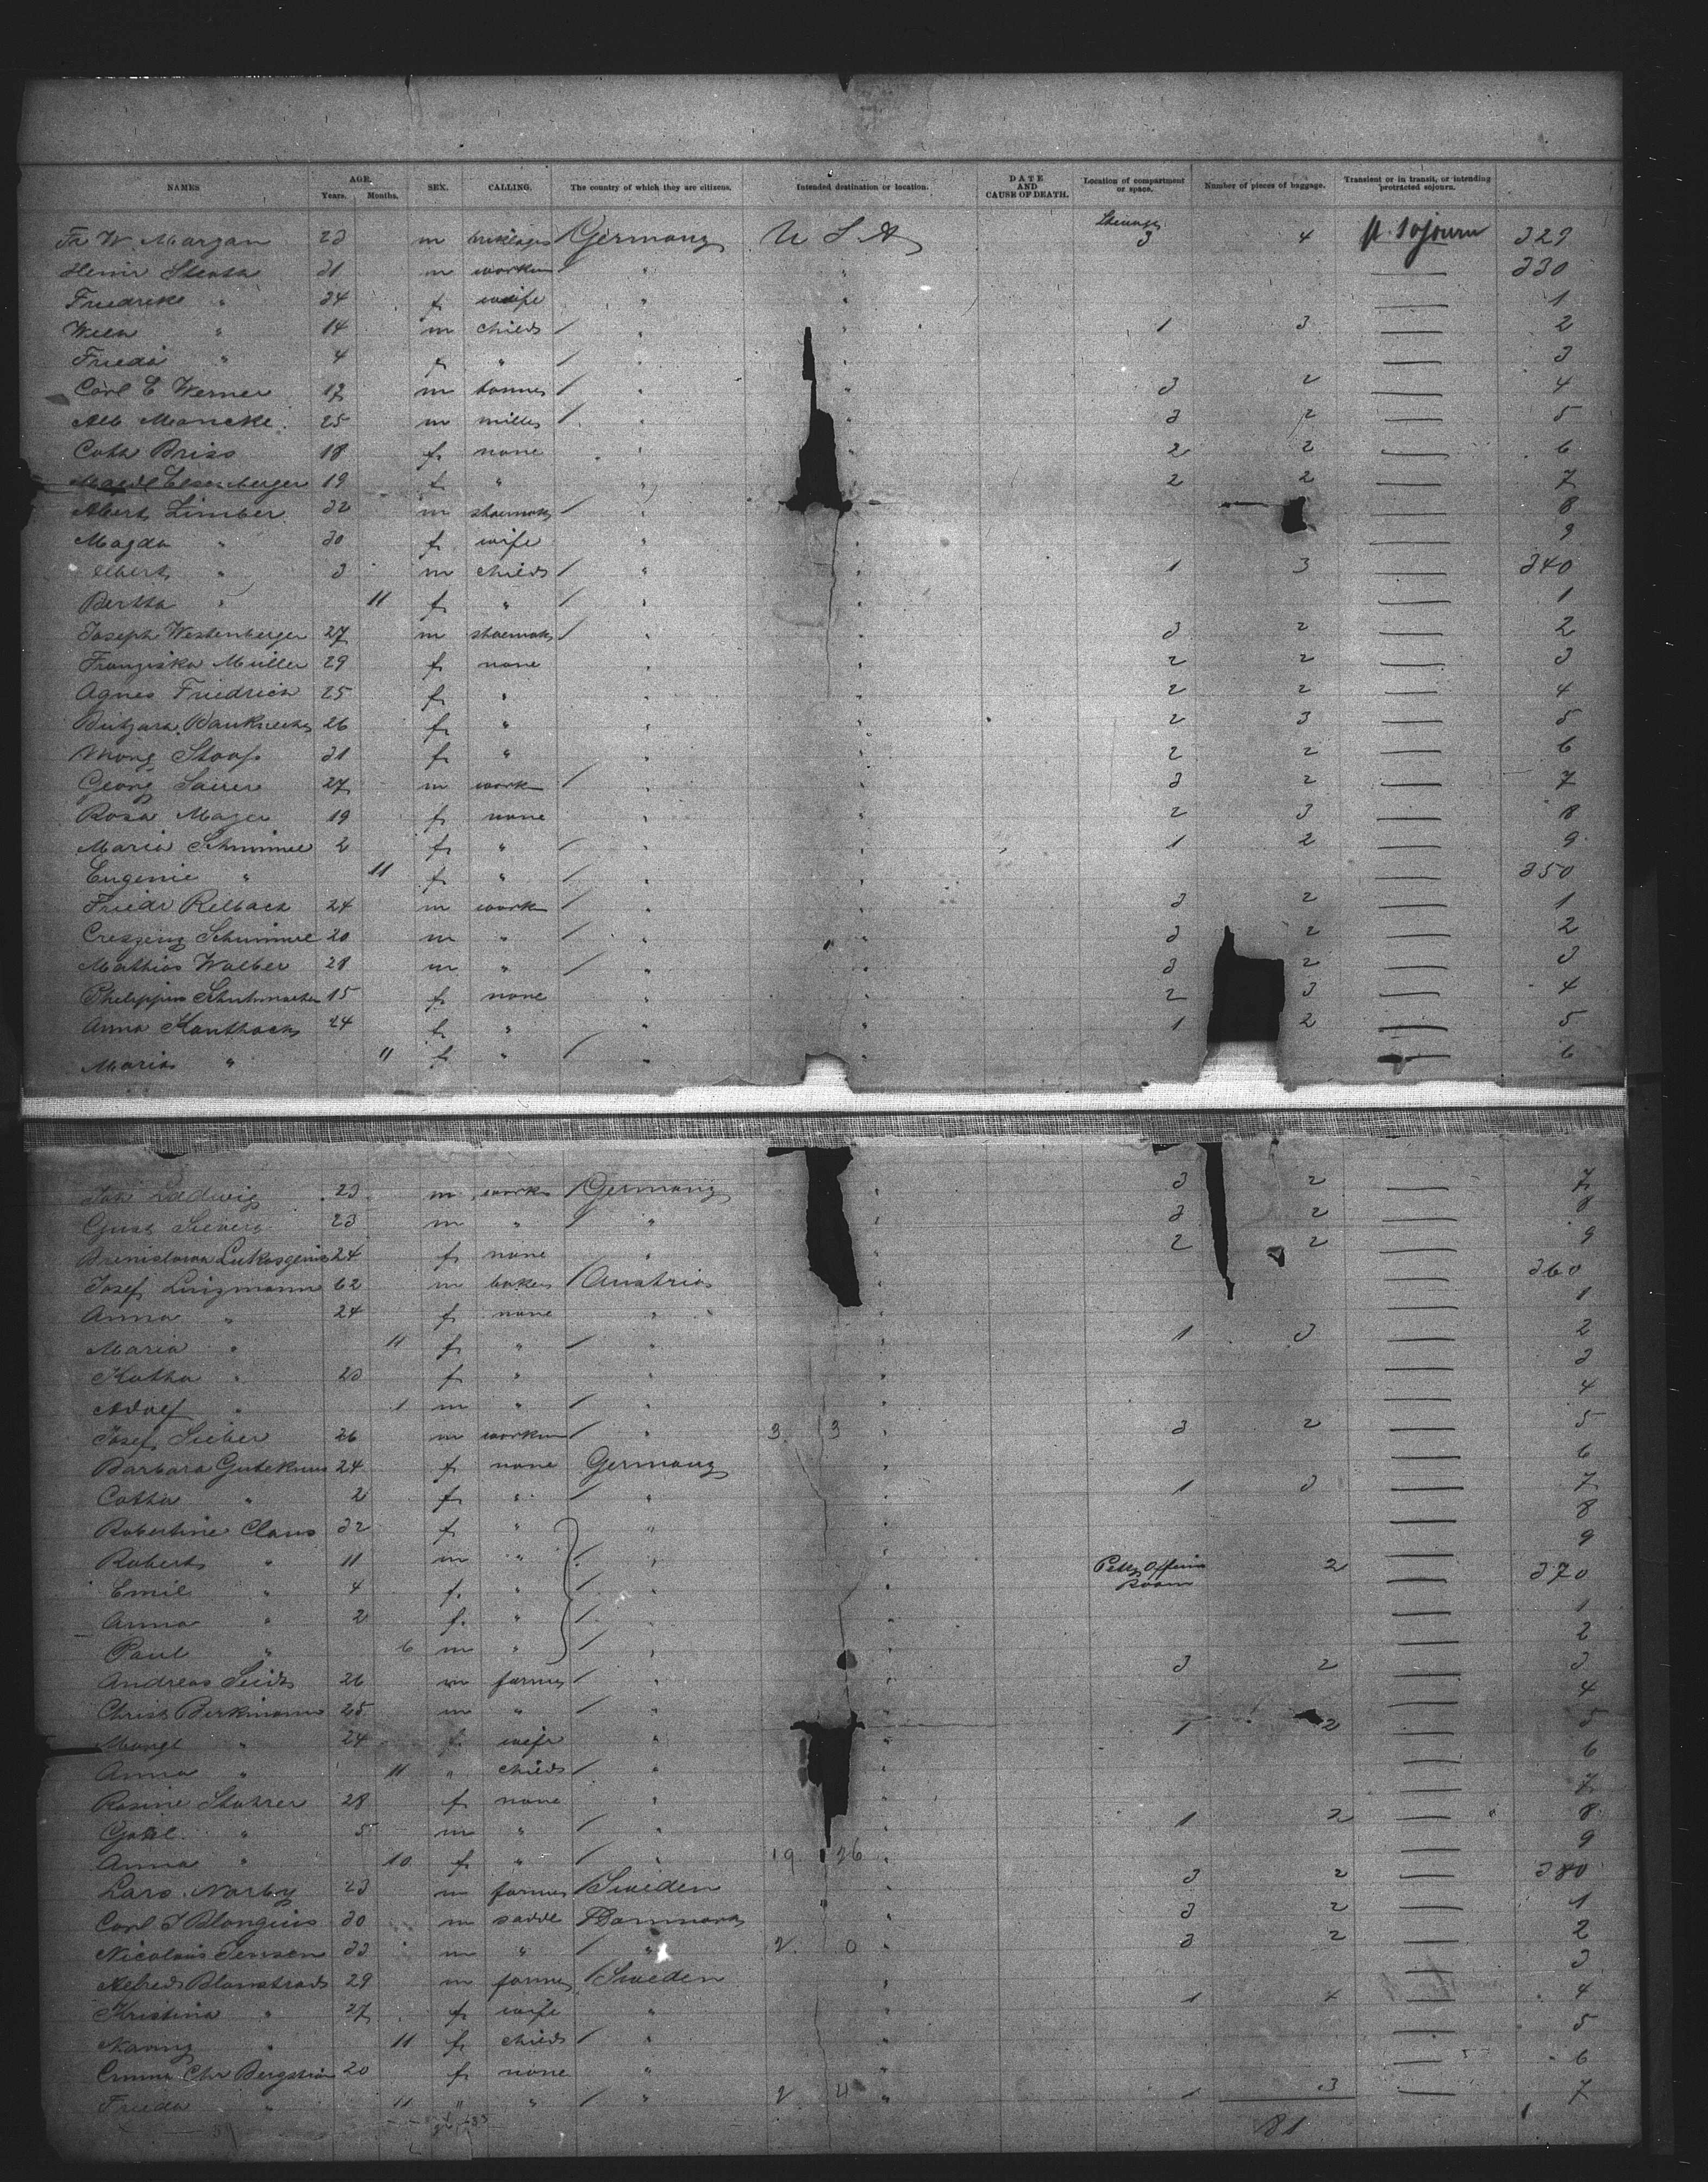 NAMES AGE. Years. Months. SEX. CALLING. The country of which they are citizens. Intended destination or location. DATE AND CAUSE OF DEATH. Location of compartment or space. Number of pieces of baggage. Transient or in transit, or intending protracted sojourn.
Fr W. Morgan 23 m Germany U S A Steerage 3 4 p. sojourn 329
Heinr 31 m workm " " — 330
Friedrike " 24 f wife " " — 1
Welh " 14 m child / " " 1 3 — 2
Frieda " 4 f " / " " — 3
Carl E Werner 17 m / " " 3 2 — 4
Alb Mancke 25 m miller / " 3 2 — 5
Cath Briss 18 f none " " 2 2 — 6
19 f " " 2 2 — 7
Albert Limber 32 m shoemak / " " — 8
Magda " 30 f wife " " — 9
Albert " 3 m child / " " 1 3 — 340
Bertha " 11 f " / " " — 1
Joseph Westenberger 27 m shoemak / " " 3 2 — 2
Franziska Müller 29 f none " " 2 2 — 3
Agnes Friedrich 25 f " " " 2 2 — 4
26 f " " " 2 3 — 5
31 f " " " 2 2 — 6
Georg Saurer 27 m work / " " 3 2 — 7
Rosa Mayer 19 f none " " 2 3 — 8
Maria Schimmel 2 f " / " " 1 2 — 9
Eugenie " 11 f " / " " — 350
Friedr Relback 24 m work / " " 3 2 — 1
Schimmel 20 m " / " " 3 2 — 2
Mathias Walber 28 m " / " " 3 2 — 3
Philippina Schuhmacher 15 f none " " 2 3 — 4
Anna Kanthack 24 f " " " 1 2 — 5
Maria " 11 f " / " " — 6
Ludwig 23 m work / Germany " 3 2 — 7
Gust Sievers 23 m " / " " 3 2 — 8
24 f none " 2 2 — 9
Josef Lingmann 62 m baker / Austria — 360
Anna " 24 f none " — 1
Maria " 11 f " / " " 1 3 — 2
Katha " 20 f " " " — 3
Adolf " 1 m " / " " — 4
Josef Sieber 26 m workm / " 3 3 " 3 2 — 5
Barbara Gutekuns 24 f none Germany " — 6
Catha " 2 f " / " " 1 3 — 7
Robertine Claus 32 f " " " — 8
Robert " 11 m " / " " — 9
Emil " 4 f. " / " " Petty Officers Room 2 — 370
Anna " 2 f. " / " " — 1
Paul " 6 m " / " — 2
Andreas 26 m farmer / " 3 2 — 3
Christ Berkmann 25 m " / " — 4
Margt " 24 f wife " " 1 2 — 5
Anna " 11 " child / " " — 6
Rosine Stohrer 28 f none " " — 7
" 5 m " / " " 1 2 — 8
Anna " 10 f " / " 19 26 " — 9
Lars Norby 23 m farmer / Sweden " 3 2 — 380
Carl J Blongius 30 m 3 2 — 1
Nicolaus Jensen 33 m " / " 2 0 " 3 2 — 2
Alfred 29 m farmer / Sweden " — 3
Kristina " 27 f wife " " 1 4 — 4
" 11 f child / " " — 5
Emma Chr Bergström 20 f none " " — 6
Frieda " 11 " " / " 2 4 " 1 3 — 7
81